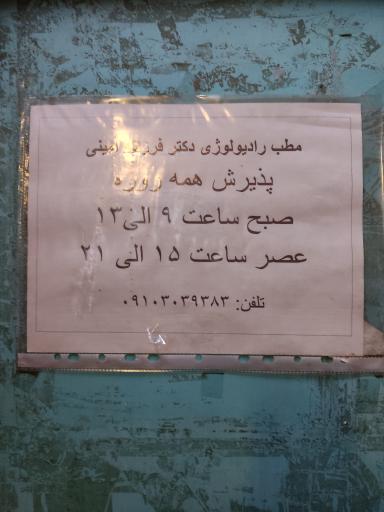 مطب رادیولوژی دکتر امینی
پذیرش همه روزه
صبح ساعت ۹ الی ۱۳
عصر ساعت ۱۵ الی ۲۱
تلفن: ۰۹۱۰۳۰۳۹۳۸۳